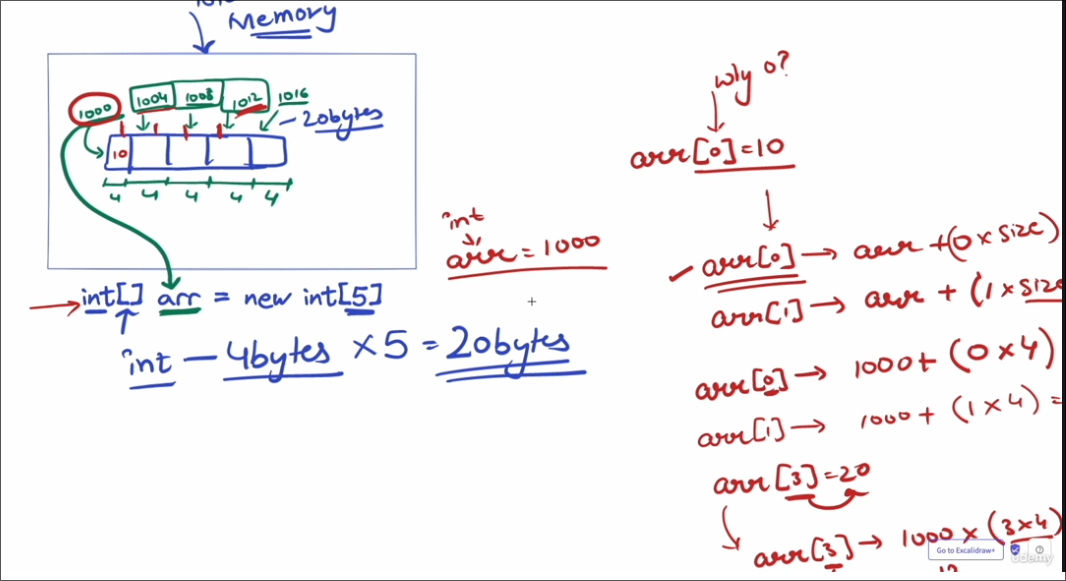 Memory
1000 1004 1008 1012 1016
20bytes
10
4 4 4 4 4
int[] arr = new int[5]
int - 4bytes × 5 = 20bytes
int
arr = 1000
why 0?
arr[0]=10
arr[0] → arr + (0 × size)
arr[1] → arr + (1 × size
arr[0] → 1000 + (0 × 4)
arr[1] → 1000 + (1 × 4) =
arr[3] = 20
arr[3] → 1000 × (3×4)
Go to Excalidraw+
ûdemy